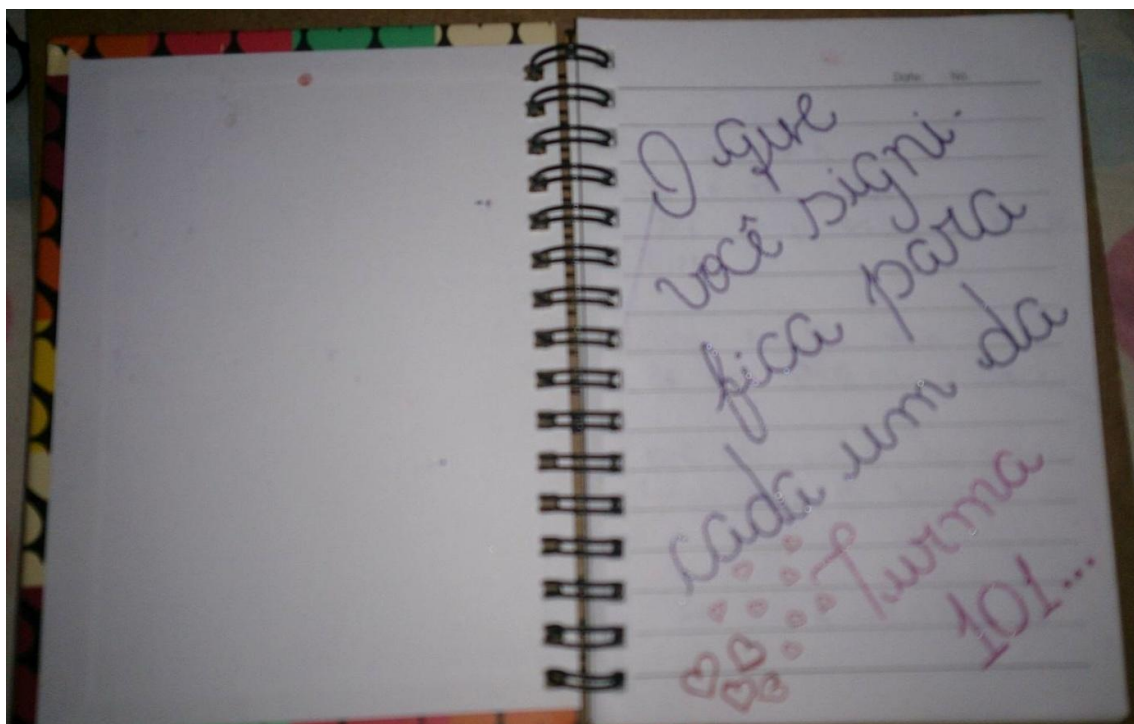 Date: No.
O que
você signi-
fica para
cada um da
Turma
101...